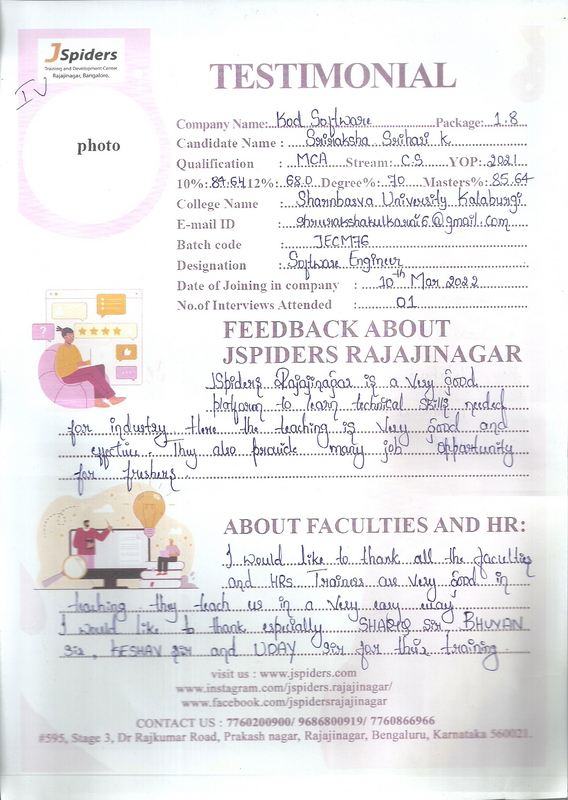 JSpiders
Training and Development Center
Rajajinagar, Bangalore.
IV
TESTIMONIAL
photo
Company Name: Kod Software Package: 1.8
Candidate Name : Sriraksha Srihari K
Qualification : MCA Stream: C.S YOP: 2021
10%: 89.64 12%: 68.0 Degree%: 70 Masters%: 85.64
College Name : Sharnbasva University Kalaburgi
E-mail ID : shrurakshakulkarni6@gmail.com
Batch code : JECM76
Designation : Software Engineer
Date of Joining in company : 10th Mar 2022
No.of Interviews Attended : 01
FEEDBACK ABOUT
JSPIDERS RAJAJINAGAR
JSpiders Rajajinagar is a very good
platform to learn technical skills needed
for industry. Here the teaching is very good and
effective. They also provide many job opportunity
for freshers.
ABOUT FACULTIES AND HR:
I would like to thank all the faculties
and HRs. Trainers are very good in
teaching they teach us in a very easy way.
I would like to thank especially sir BHUVAN
sir, KESHAV sir and UDAY sir for their training.
visit us : www.jspiders.com
www.instagram.com/jspiders.rajajinagar/
www.facebook.com/jspidersrajajinagar
CONTACT US : 7760200900/ 9686800919/ 7760866966
#595, Stage 3, Dr Rajkumar Road, Prakash nagar, Rajajinagar, Bengaluru, Karnataka 560021.